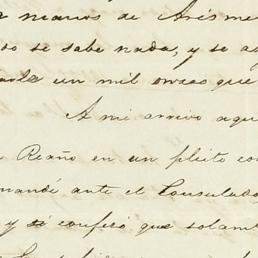 manos de Aris
se sabe nada, y se a
un mil onzas que
A mi arrivo aqu
Reaño en un pleito co
mandé ante el Consulado
y si confesó que solam